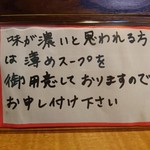 味が濃いと思われる方
は薄めスープを
御用意しておりますので
お申し付け下さい